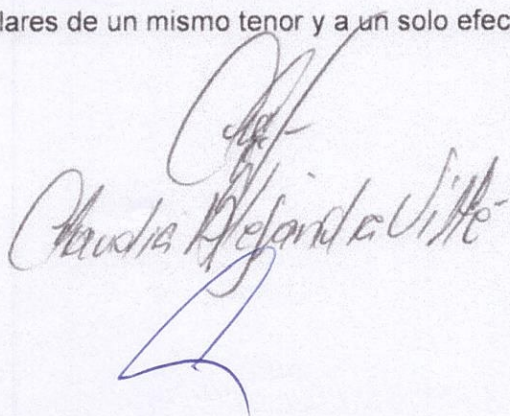 lares de un mismo tenor y a un solo efec
Claudia Alejandra Villé